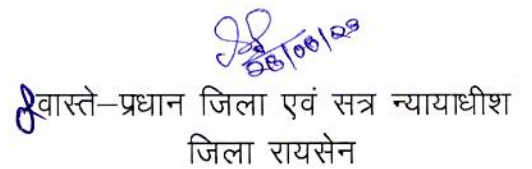 28/08/23
वास्ते–प्रधान जिला एवं सत्र न्यायाधीश
जिला रायसेन